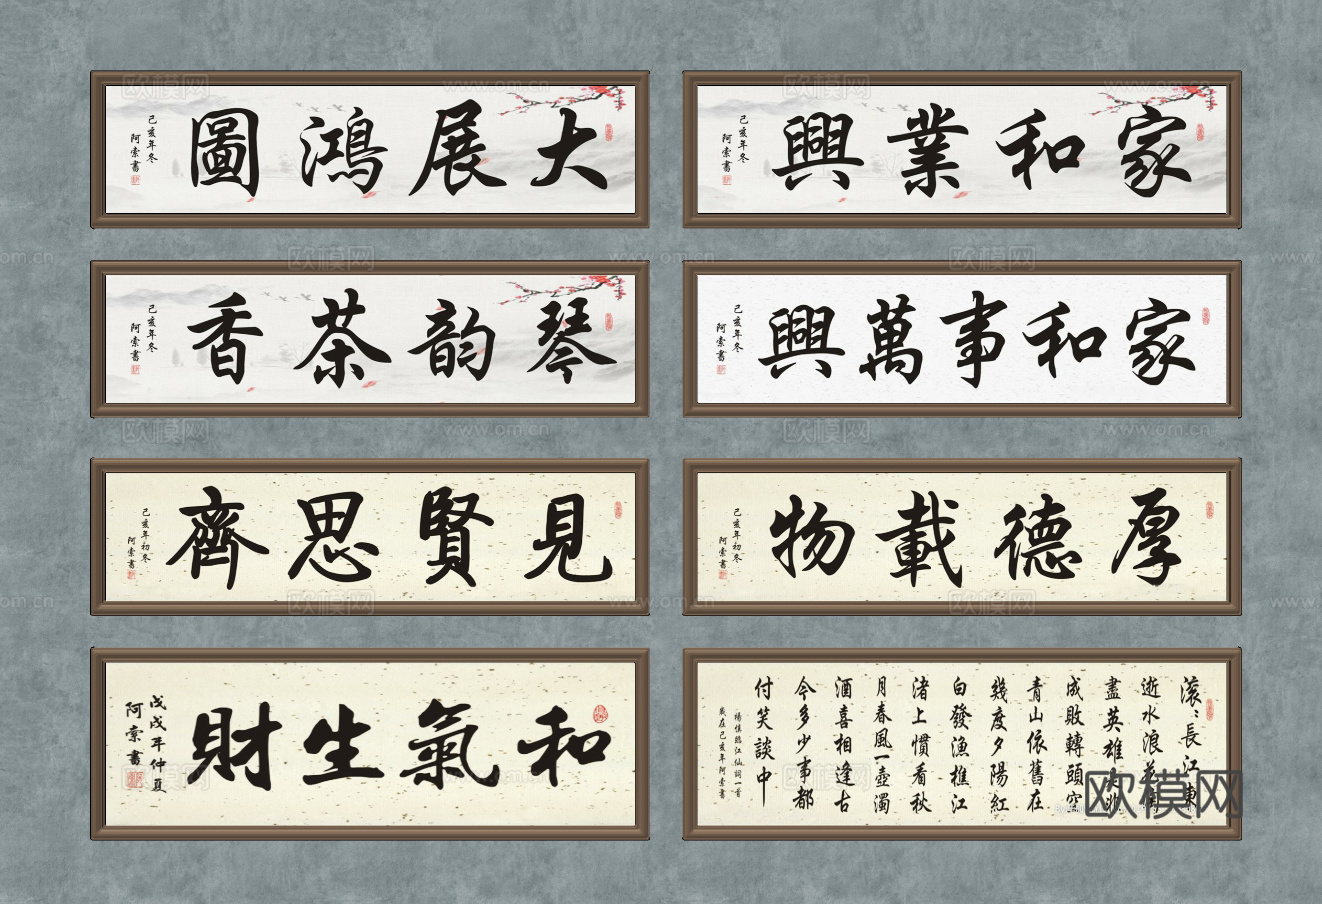 大展鴻圖
己亥年冬
阿索書
家和業興
己亥年冬
阿索書
琴韵茶香
己亥年冬
阿索書
家和事萬興
己亥年冬
阿索書
見賢思齊
己亥年初冬
阿索書
厚德載物
己亥年初冬
阿索書
和氣生財
戊戌年仲夏
阿索書
滚〻長江東
逝水浪花
盡英雄
成敗轉頭空
青山依舊在
幾度夕陽紅
白發漁樵江
渚上慣看秋
月春風一壺濁
酒喜相逢古
今多少事都
付笑談中
楊慎臨江仙詞一首
歲在己亥年阿索書
欧模网
www.om.cn